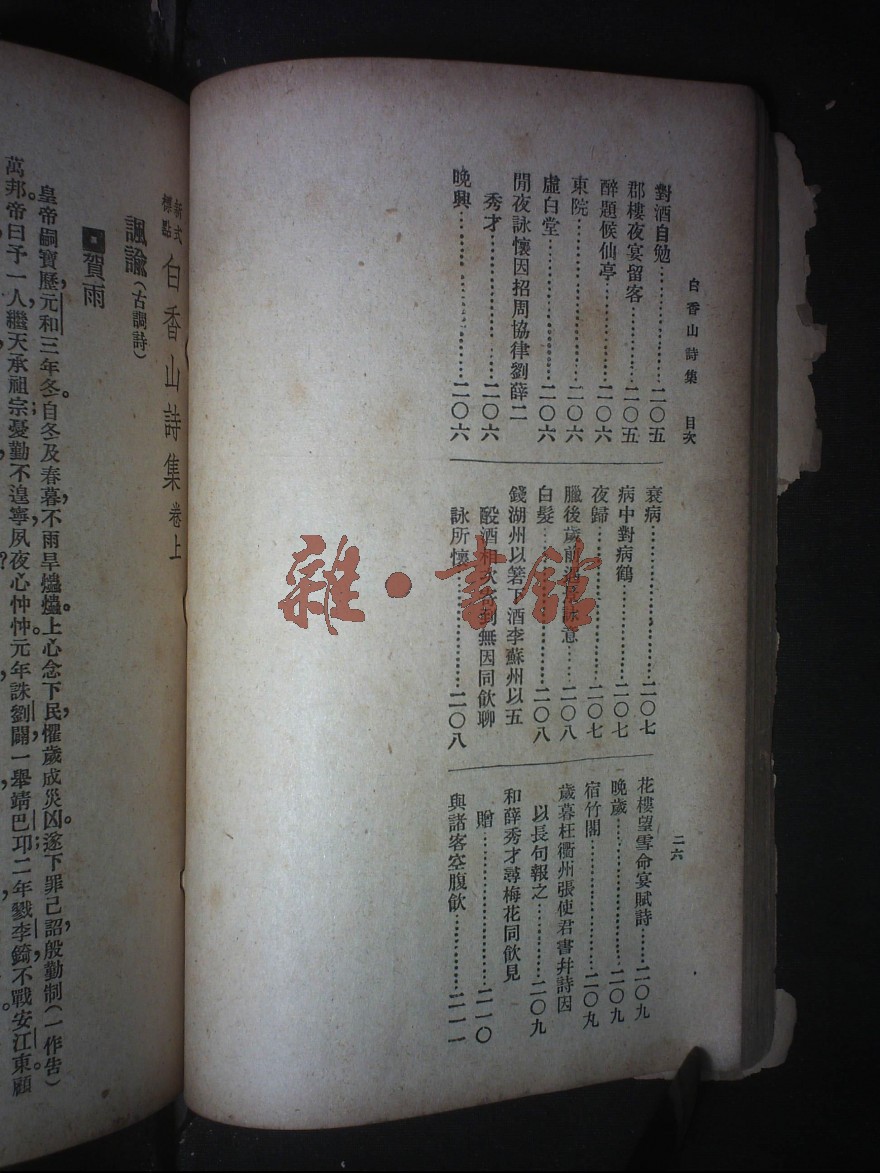 白香山詩集　目次
二六
對酒自勉……二〇五
郡樓夜宴留客……二〇五
醉題候仙亭……二〇六
東院……二〇六
虛白堂……二〇六
閒夜詠懷因招周協律劉薛二
秀才……二〇六
晚興……二〇六
衰病……二〇七
病中對病鶴……二〇七
夜歸……二〇七
臘後歲前……詠意……二〇八
白髮……二〇八
錢湖州以箬下酒李蘇州以五
酘酒相次……到無因同飲聊
詠所懷……二〇八
花樓望雪命宴賦詩……二〇九
晚歲……二〇九
宿竹閣……二〇九
歲暮枉衢州張使君書幷詩因
以長句報之……二〇九
和薛秀才尋梅花同飲見
贈……二一〇
與諸客空腹飲……二一一
雜·書館
新式標點　白香山詩集　卷上
諷諭（古調詩）
賀雨
皇帝嗣寶歷，元和三年冬。自冬及春暮，不雨旱爞爞。上心念下民，懼歲成災凶。遂下罪己詔，殷勤制（一作告）
萬邦。帝曰予一人，繼天承祖宗；憂勤不遑寧，夙夜心忡忡。元年誅劉闢，一舉靖巴邛；二年戮李錡，不戰安江東。顧